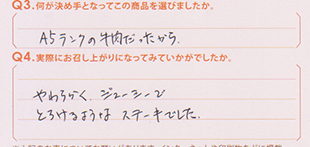 Q3.何が決め手となってこの商品を選びましたか。
A5ランクの牛肉だったから.
Q4.実際にお召し上がりになってみていかがでしたか。
やわらかく.ジューシーで
とろけるような ステーキでした。